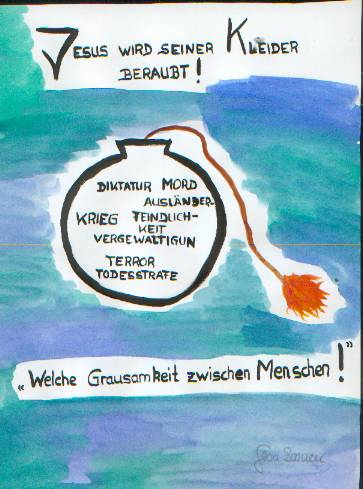 JESUS WIRD SEINER KLEIDER
BERAUBT!
DIKTATUR MORD
AUSLÄNDER-
KRIEG FEINDLICH-
KEIT
VERGEWALTIGUN
TERROR
TODESSTRAFE
„Welche Grausamkeit zwischen Menschen!"